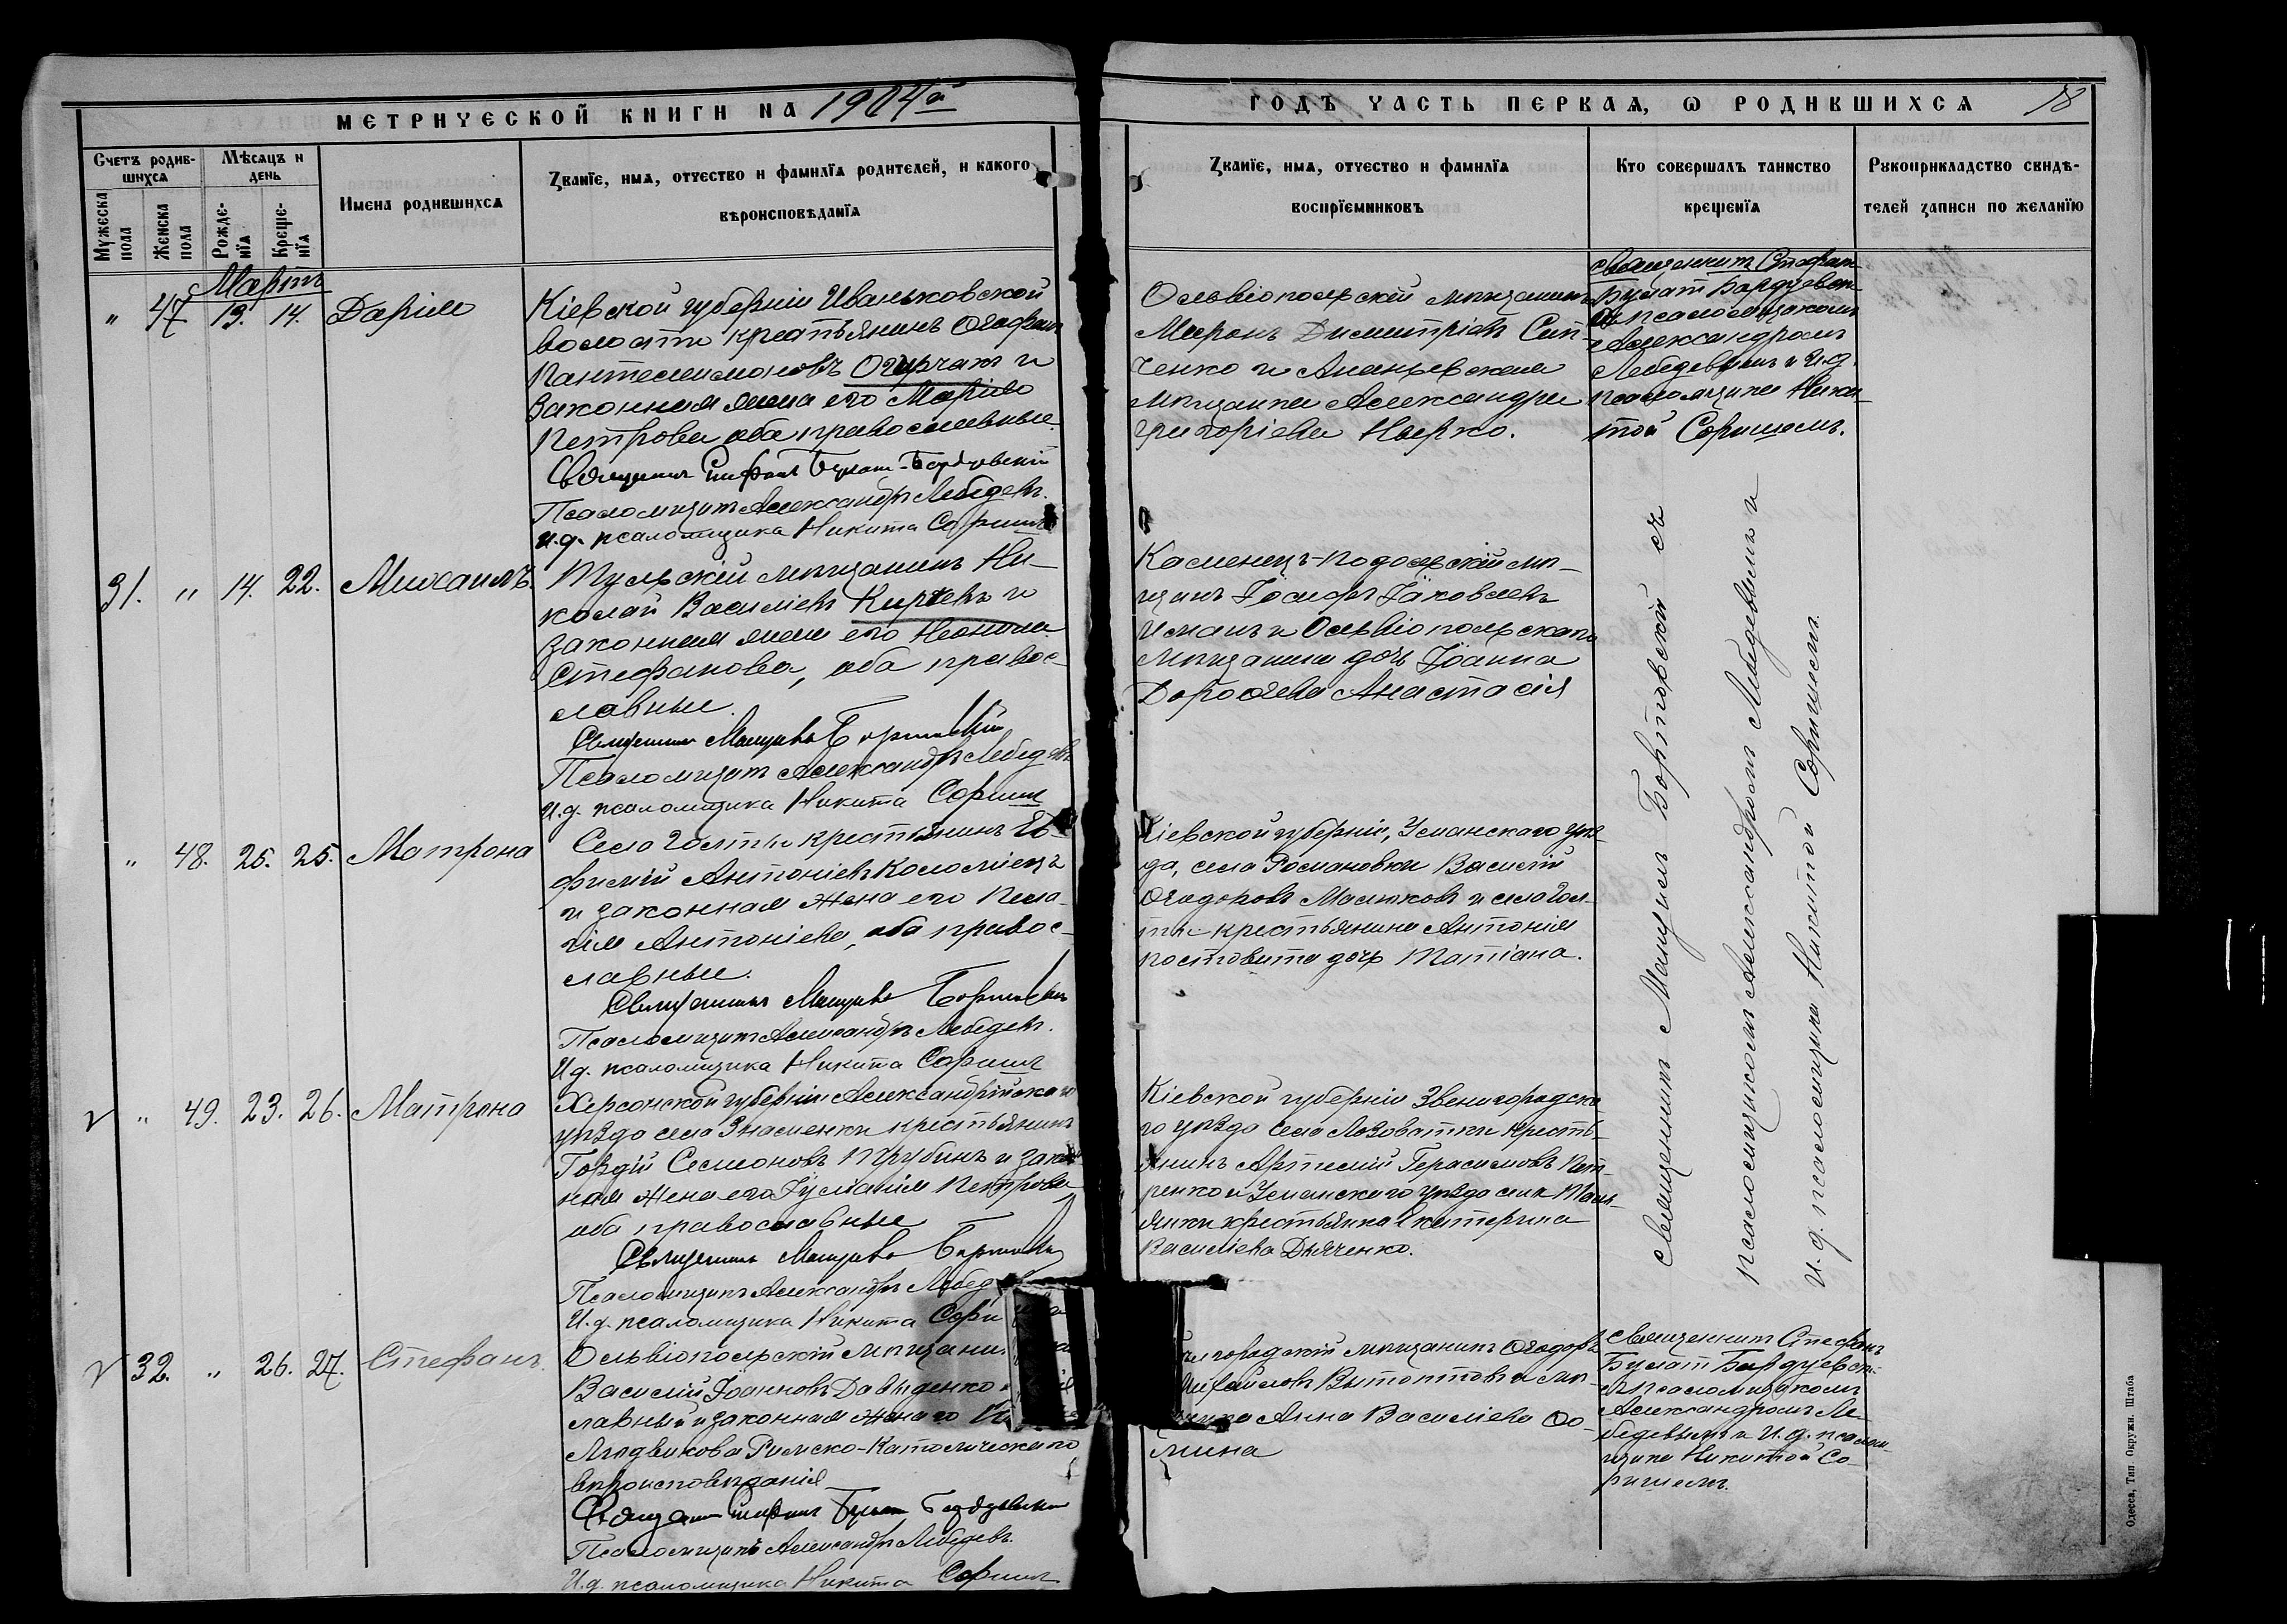 МЕТРИЧЕСКОЙ КНИГИ НА 1904й
ГОДЪ ЧАСТЬ ПЕРВАЯ, Ѡ РОДИВШИХСЯ 78
Счетъ родив-
шихся
Мѣсяцъ и
день
Мужеска
пола
Женска
пола
Рожде-
нія
Креще-
нія
Имена родившихся
Званїе, имя, отчество и фамилїя родителей, и какого
вѣроисповѣданїя
Званїе, имя, отчество и фамилїя
воспрїемниковъ
Кто совершалъ таинство
крещенїя
Рукоприкладство свидѣ-
телей записи по желанїю
Мартъ
" 47 13. 14. Дарія
Кіевской губерніи Иваньковской
волости крестьянинъ Ѳеофанъ
Пантелеимоновъ Огурчакъ и
законная жена его Марія
Петрова оба православные.
Священникъ Стефанъ Булат-Бардуевскій
Псаломщикъ Александръ Лебедевъ.
И.д. псаломщика Никита Соришъ
Ольвіопольскій мѣщанинъ
Миронъ Димитріевъ Сит-
ченко и Ананьевская
мѣщанка Александра
Григоріева Нверко.
Священникъ Стефанъ
Булат Бардуевск.
съ псаломщикомъ
Александромъ
Лебедевымъ и И.д.
псаломщика Ники-
той Соришемъ.
31. " 14. 22. Михаилъ.
Тульскій мѣщанинъ Ни-
колай Василіевъ Киреевъ и
законная жена его Неонила
Стефанова, оба правос-
лавные.
Священникъ Борт
Псаломщикъ Александръ Лебедевъ
И.д. псаломщика Никита Соришъ
Каменецъ-Подольскій мѣ-
щанъ Іосифъ Іаковлевъ
Исманъ и Ольвіопольскаго
мѣщанина дочь Іоанна
Дороѳеева Анастасія
" 48. 25. 25. Матрона
Села Голты крестьянинъ Ев-
фимій Антоніевъ Коломіецъ
и законная жена его Пела-
гія Антоніева, оба правос-
лавные.
Священникъ
Псаломщикъ Александръ Лебедевъ.
И.д. псаломщика Никита Соришъ
Кіевской губерніи, Уманскаго уѣз-
да, села Романовки Василій
Ѳеодоровъ Маслюковъ и села Гол-
ты крестьянина Антонія
Постовита дочь Татіана.
Священникъ Бортовскій съ
псаломщикомъ Александромъ Лебедевымъ и
И.д. псаломщика Никитой Соришемъ.
v " 49. 23. 26. Матрона
Херсонской губерніи Александрійскаго
уѣзда села Знаменки крестьянинъ
Гордій Семеоновъ Трубинъ и закон
ная жена его Іуліанія Петрова
оба православные
Священникъ
Псаломщикъ Александръ Лебед
И.д. псаломщика Никита Сори
Кіевской губерніи Звенигородска-
го уѣзда села Лозоватки кресть-
янинъ Артемій Герасимовъ Пет-
ренко и Уманскаго уѣзда села Таль-
янки крестьянка Екатерина
Василіева Дьяченко.
v 32. " 26. 27. Стефанъ.
Ольвіопольскій мѣщани
Василій Іоанновъ Давиденко
славный и законная жена его
Людвикова Римско-Католическаго
вѣроисповѣданія
Священникъ Стефанъ Булат Бардуевскій
Псаломщикъ Александръ Лебедевъ.
И.д. псаломщика Никита Соришъ
городскій мѣщанинъ Ѳеодоръ
Михайловъ Витоптовъ и мѣ-
щанка Анна Василіева Ѳо-
мина
Священникъ Стефанъ
Булат Бардуевск.
съ псаломщикомъ
Александромъ Ле-
бедевымъ и И.д. псалом-
щика Никитой Со-
ришемъ.
Одесса, Тип. Окружн. Штаба